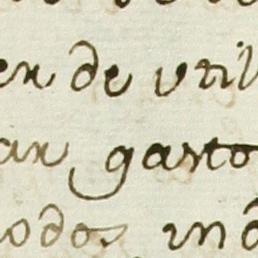 er de util
ar gasto
odos mo